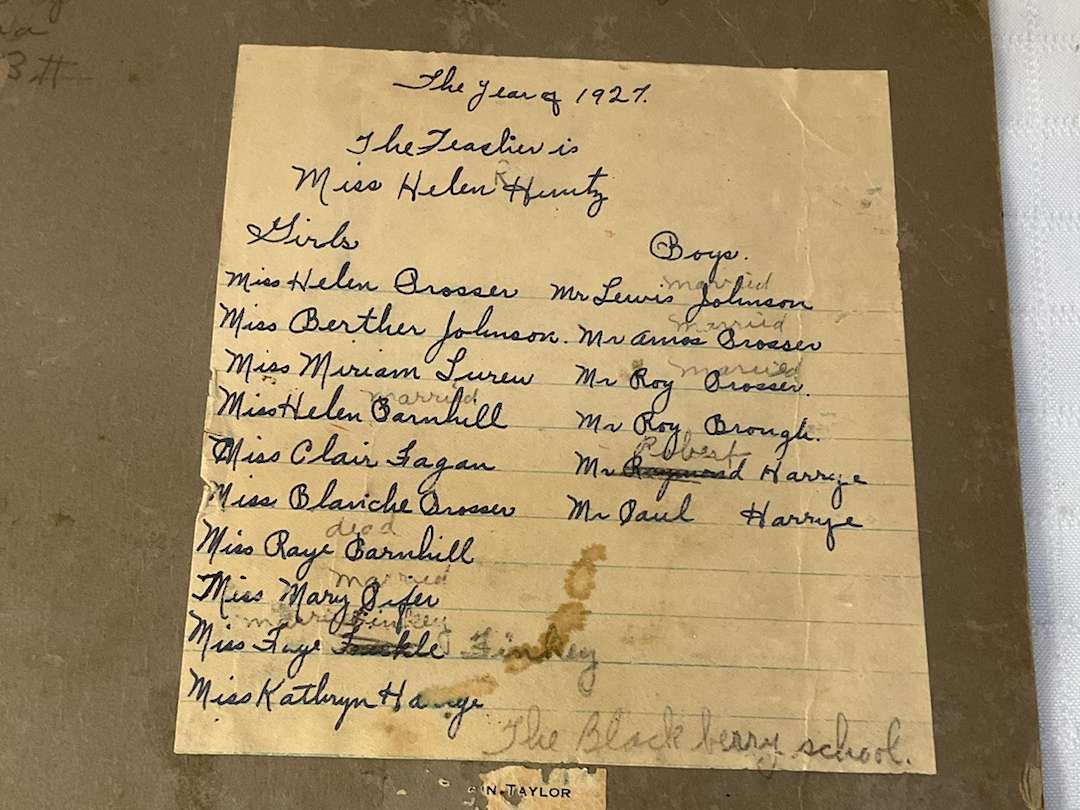 3#
The year of 1927.
The Teacher is
Miss Helen K Huntz
Girls
Boys.
Miss Helen Prosser
married
Mr Lewis Johnson
Miss Berther Johnson.
married
Mr Amos Prosser
Miss Miriam
married
Mr Roy Prosser.
married
Miss Helen Barnhill
Mr Roy Brough.
Miss Clair Fagan
Robert
Mr Raymond Harrye
Miss Blanche Prosser
Mr Paul Harrye
dead
Miss Raye Barnhill
married
Miss Mary Pifer
married Finkey
Miss Faye Finkey
Miss Kathryn Harrye
The Black berry school.
N TAYLOR